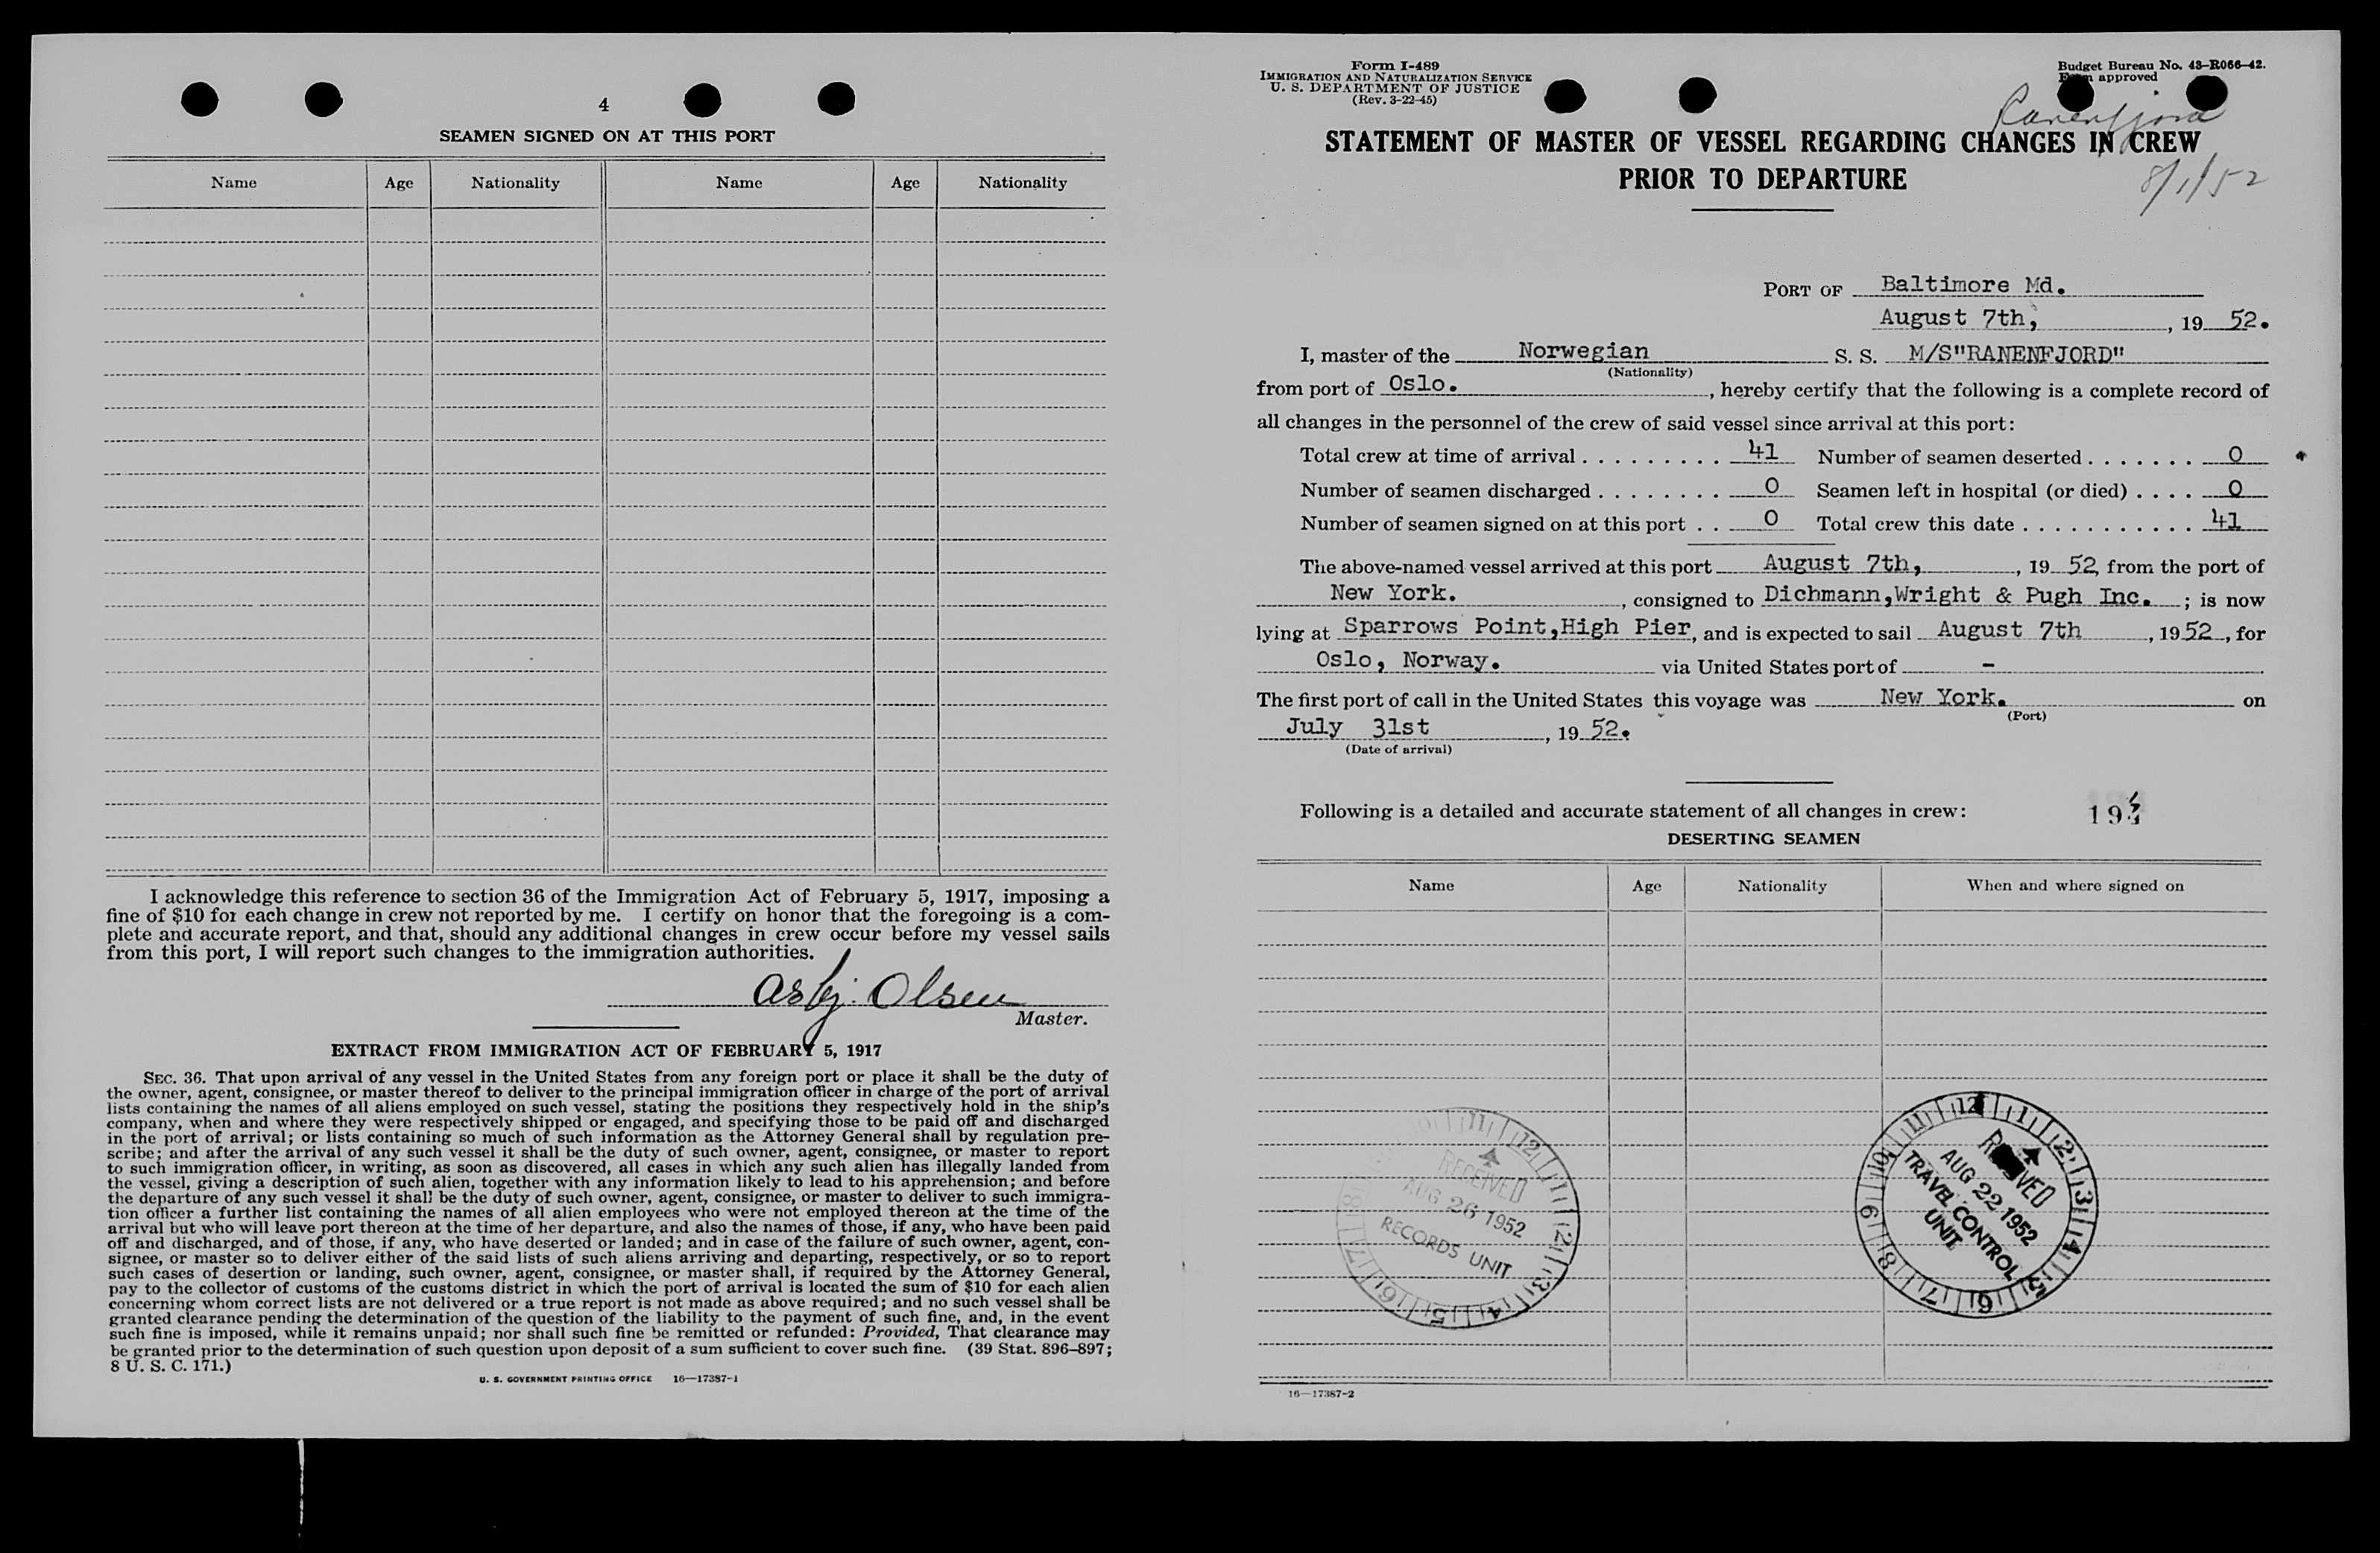 4
SEAMEN SIGNED ON AT THIS PORT
Name Age Nationality Name Age Nationality
I acknowledge this reference to section 36 of the Immigration Act of February 5, 1917, imposing a
fine of $10 for each change in crew not reported by me. I certify on honor that the foregoing is a com-
plete and accurate report, and that, should any additional changes in crew occur before my vessel sails
from this port, I will report such changes to the immigration authorities.
Asbj. Olsen
Master.
EXTRACT FROM IMMIGRATION ACT OF FEBRUARY 5, 1917
SEC. 36. That upon arrival of any vessel in the United States from any foreign port or place it shall be the duty of
the owner, agent, consignee, or master thereof to deliver to the principal immigration officer in charge of the port of arrival
lists containing the names of all aliens employed on such vessel, stating the positions they respectively hold in the ship's
company, when and where they were respectively shipped or engaged, and specifying those to be paid off and discharged
in the port of arrival; or lists containing so much of such information as the Attorney General shall by regulation pre-
scribe; and after the arrival of any such vessel it shall be the duty of such owner, agent, consignee, or master to report
to such immigration officer, in writing, as soon as discovered, all cases in which any such alien has illegally landed from
the vessel, giving a description of such alien, together with any information likely to lead to his apprehension; and before
the departure of any such vessel it shall be the duty of such owner, agent, consignee, or master to deliver to such immigra-
tion officer a further list containing the names of all alien employees who were not employed thereon at the time of the
arrival but who will leave port thereon at the time of her departure, and also the names of those, if any, who have been paid
off and discharged, and of those, if any, who have deserted or landed; and in case of the failure of such owner, agent, con-
signee, or master so to deliver either of the said lists of such aliens arriving and departing, respectively, or so to report
such cases of desertion or landing, such owner, agent, consignee, or master shall, if required by the Attorney General,
pay to the collector of customs of the customs district in which the port of arrival is located the sum of $10 for each alien
concerning whom correct lists are not delivered or a true report is not made as above required; and no such vessel shall be
granted clearance pending the determination of the question of the liability to the payment of such fine, and, in the event
such fine is imposed, while it remains unpaid; nor shall such fine be remitted or refunded: Provided, That clearance may
be granted prior to the determination of such question upon deposit of a sum sufficient to cover such fine. (39 Stat. 896-897;
8 U. S. C. 171.)
U. S. GOVERNMENT PRINTING OFFICE 16—17387-1
Form I-489
IMMIGRATION AND NATURALIZATION SERVICE
U. S. DEPARTMENT OF JUSTICE
(Rev. 3-22-45)
Budget Bureau No. 43-R066-42.
Form approved
Ranenfjord
STATEMENT OF MASTER OF VESSEL REGARDING CHANGES IN CREW
PRIOR TO DEPARTURE
8/1/52
PORT OF Baltimore Md.
August 7th, , 19 52.
I, master of the Norwegian S. S. M/S"RANENFJORD"
(Nationality)
from port of Oslo. , hereby certify that the following is a complete record of
all changes in the personnel of the crew of said vessel since arrival at this port:
Total crew at time of arrival 41 Number of seamen deserted 0
Number of seamen discharged 0 Seamen left in hospital (or died) 0
Number of seamen signed on at this port 0 Total crew this date 41
The above-named vessel arrived at this port August 7th, , 19 52, from the port of
New York. , consigned to Dichmann,Wright & Pugh Inc. ; is now
lying at Sparrows Point,High Pier, and is expected to sail August 7th , 1952 , for
Oslo, Norway. via United States port of -
The first port of call in the United States this voyage was New York. on
(Port)
July 31st , 19 52.
(Date of arrival)
Following is a detailed and accurate statement of all changes in crew:
DESERTING SEAMEN
Name Age Nationality When and where signed on
RECEIVED
AUG 26 1952
RECORDS UNIT
RECEIVED
AUG 22 1952
TRAVEL CONTROL
UNIT
16—17387-2